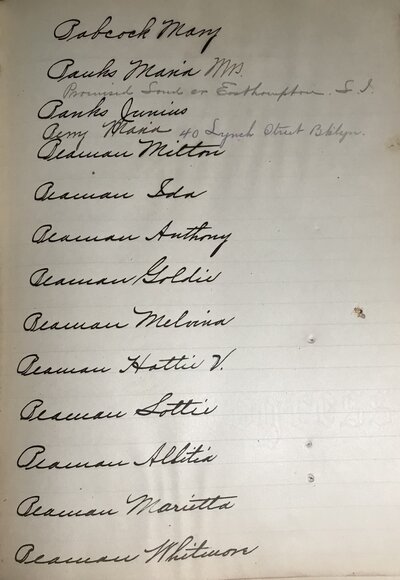 Babcock Mary
Banks Maria Mrs.
Promised Land or Easthampton. L. I.
Banks Junius
Berry Maria 40 Lynch Street Bklyn.
Beaman Milton
Beaman Ida
Beaman Anthony
Beaman Goldie
Beaman Melvina
Beaman Hattie V.
Beaman Lottie
Beaman Albitia
Beaman Marietta
Beaman Whitmon